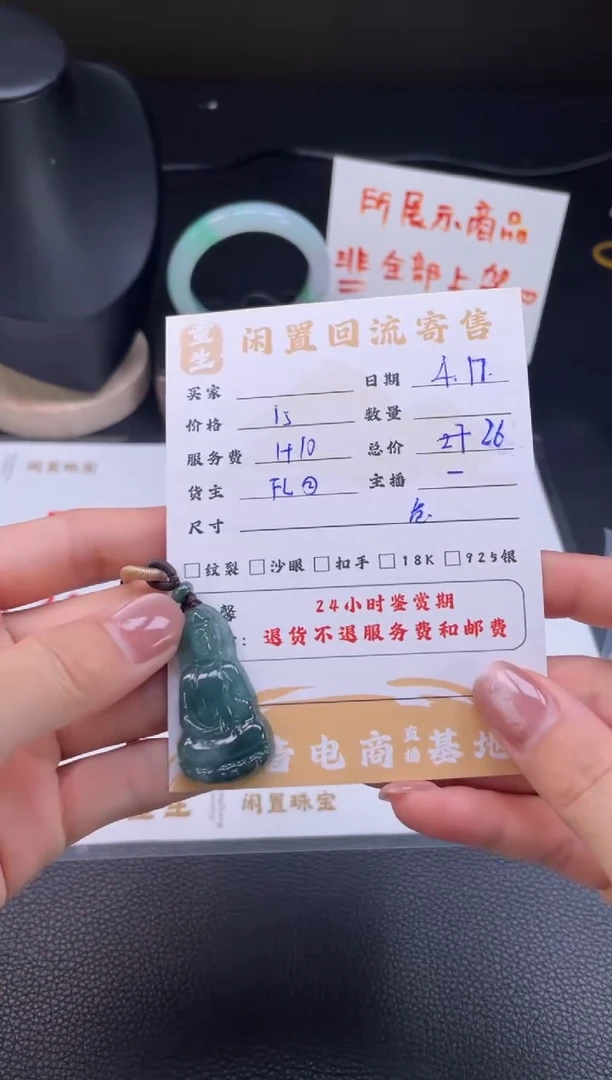 所展示商品
非全部上架
重生
闲置回流寄售
买家
日期 4.17.
价格 15
数量
服务费 1+10
总价 26
货主 FL②
主播 一
尺寸
□纹裂 □沙眼 □扣手 □18K □925银
馨
24小时鉴赏期
: 退货不退服务费和邮费
音电商直播基地
闲置珠宝
闲置珠宝